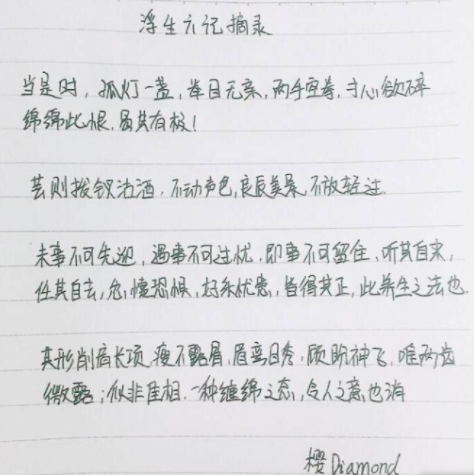 浮生六记摘录
当是时，孤灯一盏，举目无亲，两手空拳，寸心欲碎
绵绵此恨，曷其有极！
芸则拔钗沽酒，不动声色，良辰美景，不放轻过.
未事不可先迎，遇事不可过忧，即事不可留住，听其自来，
任其自去，忿懥恐惧，好乐忧患，皆得其正，此养生之法也.
其形削肩长项，瘦不露骨，眉弯目秀，顾盼神飞，唯两齿
微露；似非佳相.一种缠绵之态，令人之意也消
樱Diamond